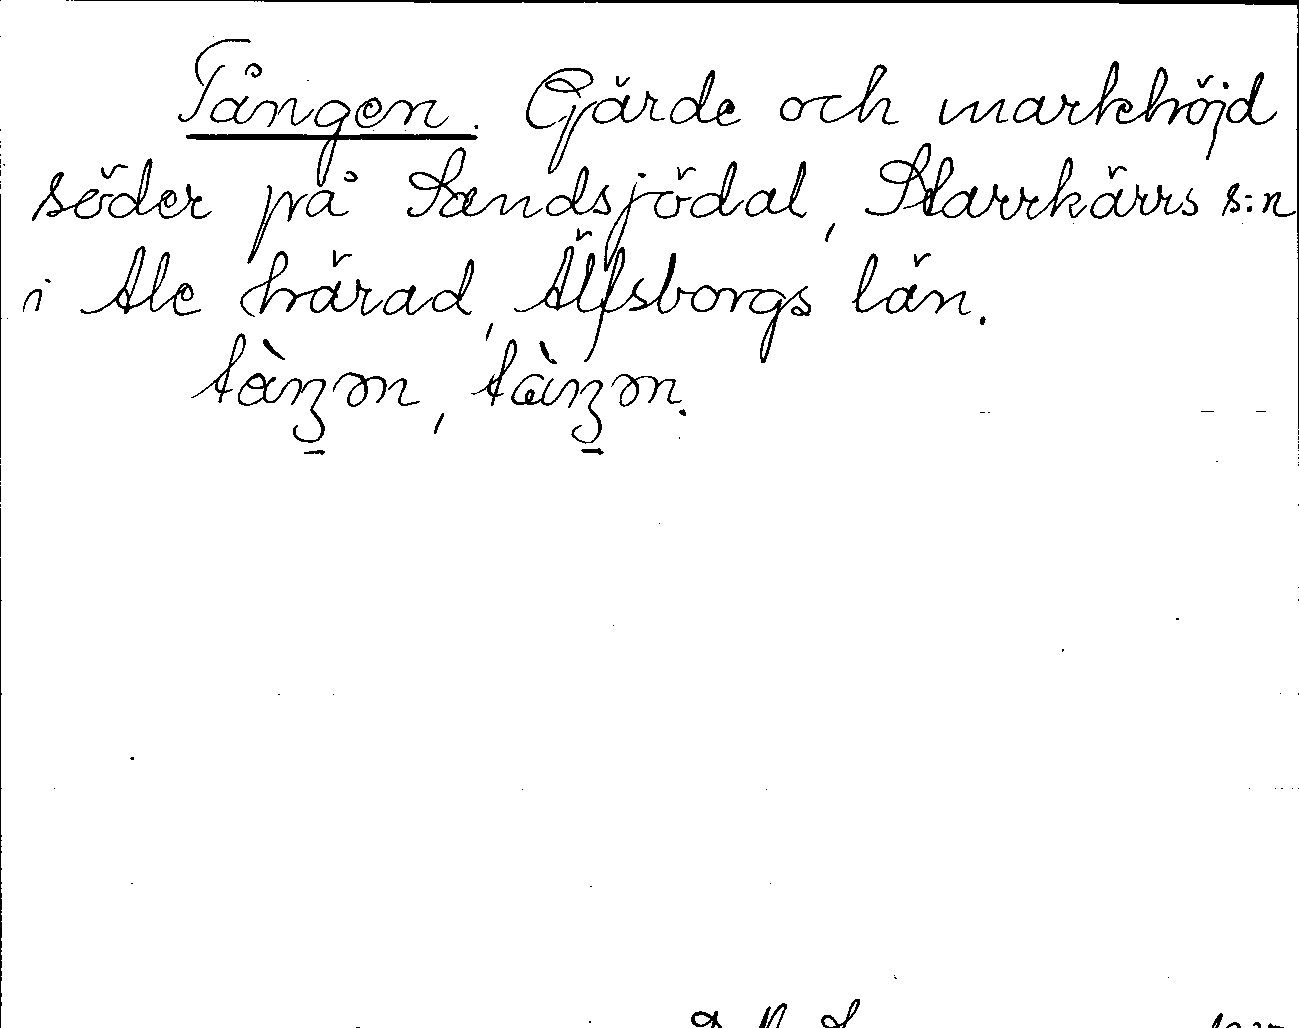 Tången. Gärde och markhöjd
söder på Sandsjödal, Starrkärrs s:n
i Ale härad, Älfsborgs län.